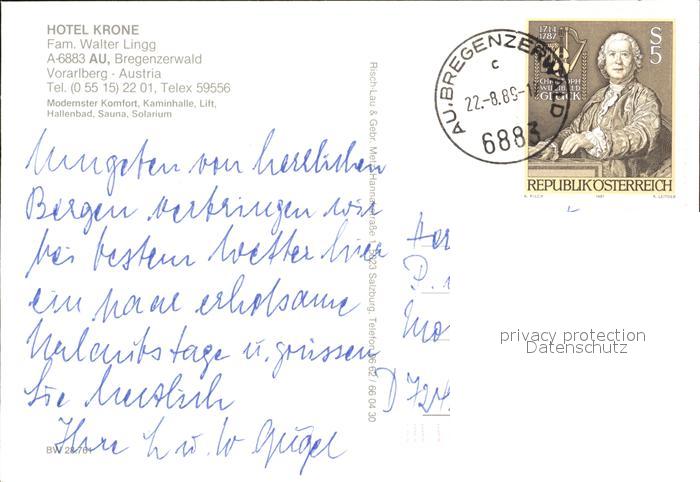 HOTEL KRONE
Fam. Walter Lingg
A-6883 AU, Bregenzerwald
Vorarlberg - Austria
Tel. (0 55 15) 22 01, Telex 59556
Modernster Komfort, Kaminhalle, Lift,
Hallenbad, Sauna, Solarium
Umgeben von herrlichen
Bergen verbringen wir
bei bestem Wetter hier
ein paar erholsame
Urlaubstage u. grüssen
Sie herzlich
Ihre L u. W Gügel
BW 28.761
Risch-Lau & Gebr. Metz, Hannakstraße 5023 Salzburg, Telefon 06 62 / 66 04 30
AU, BREGENZERWALD
c
22.-8.89-1
6883
1714
1787
CHRISTOPH
WILLIBALD
GLUCK
S
5
REPUBLIK ÖSTERREICH
A. PILCH 1987 A. LEITGEB
D 724
privacy protection
Datenschutz